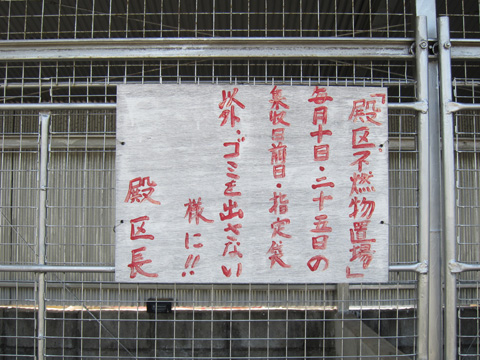 「殿区不燃物置場」
毎月十日・二十五日の
集収日前日・指定袋
以外、ゴミを出さない
様に!!
殿区長